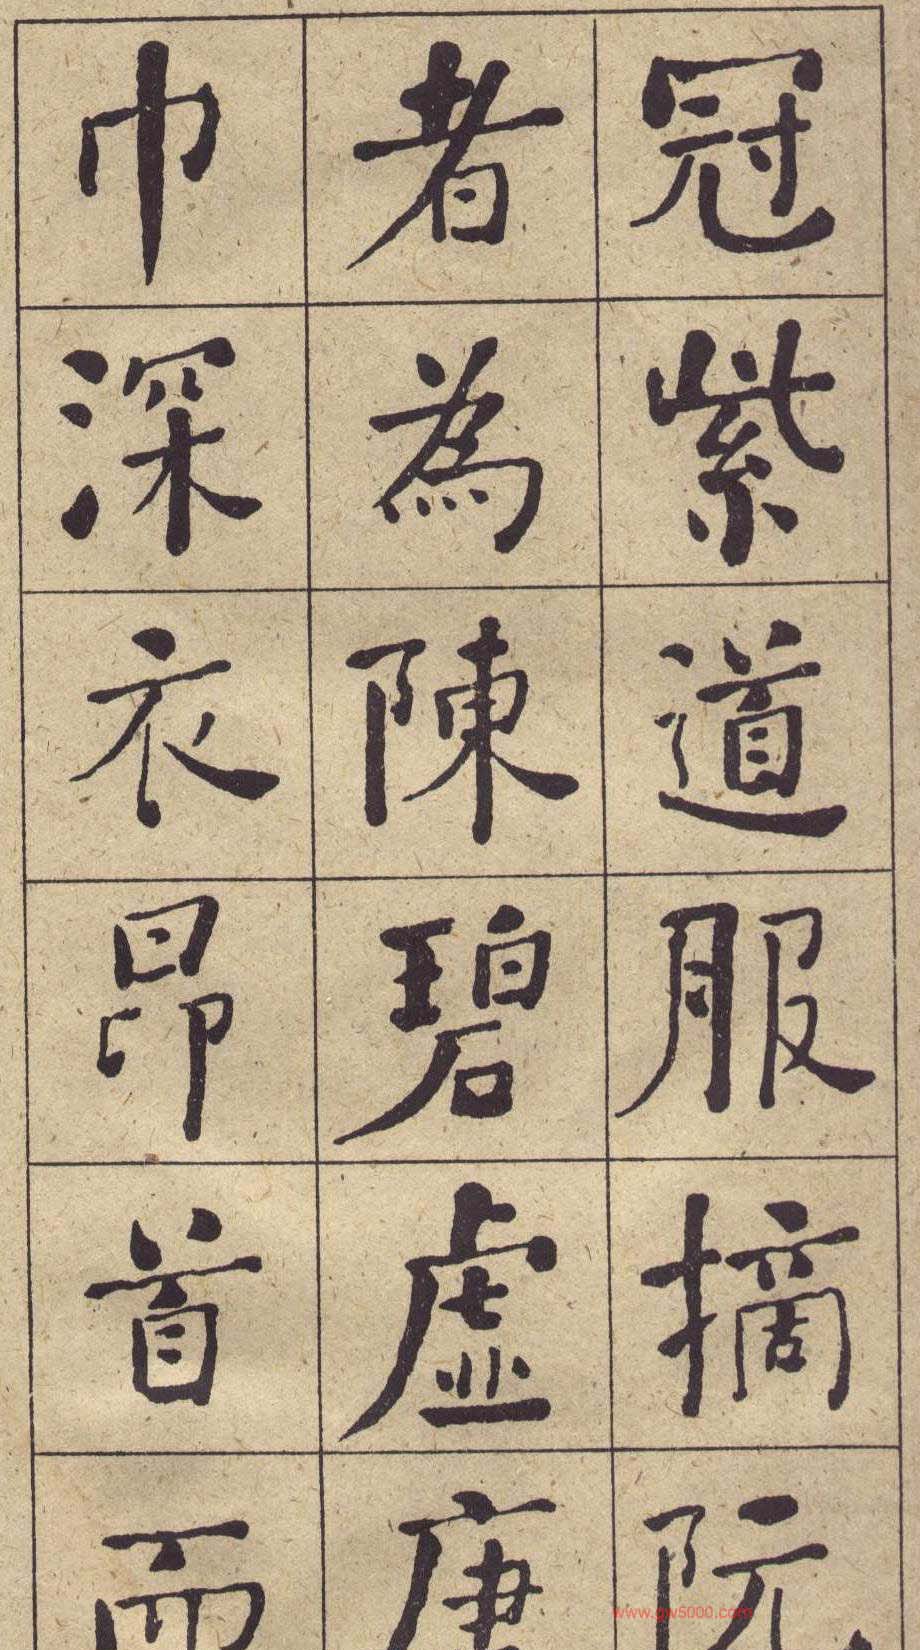 冠紫道服摘阮
者為陳碧虛唐
巾深衣昂首而
www.gw5000.com